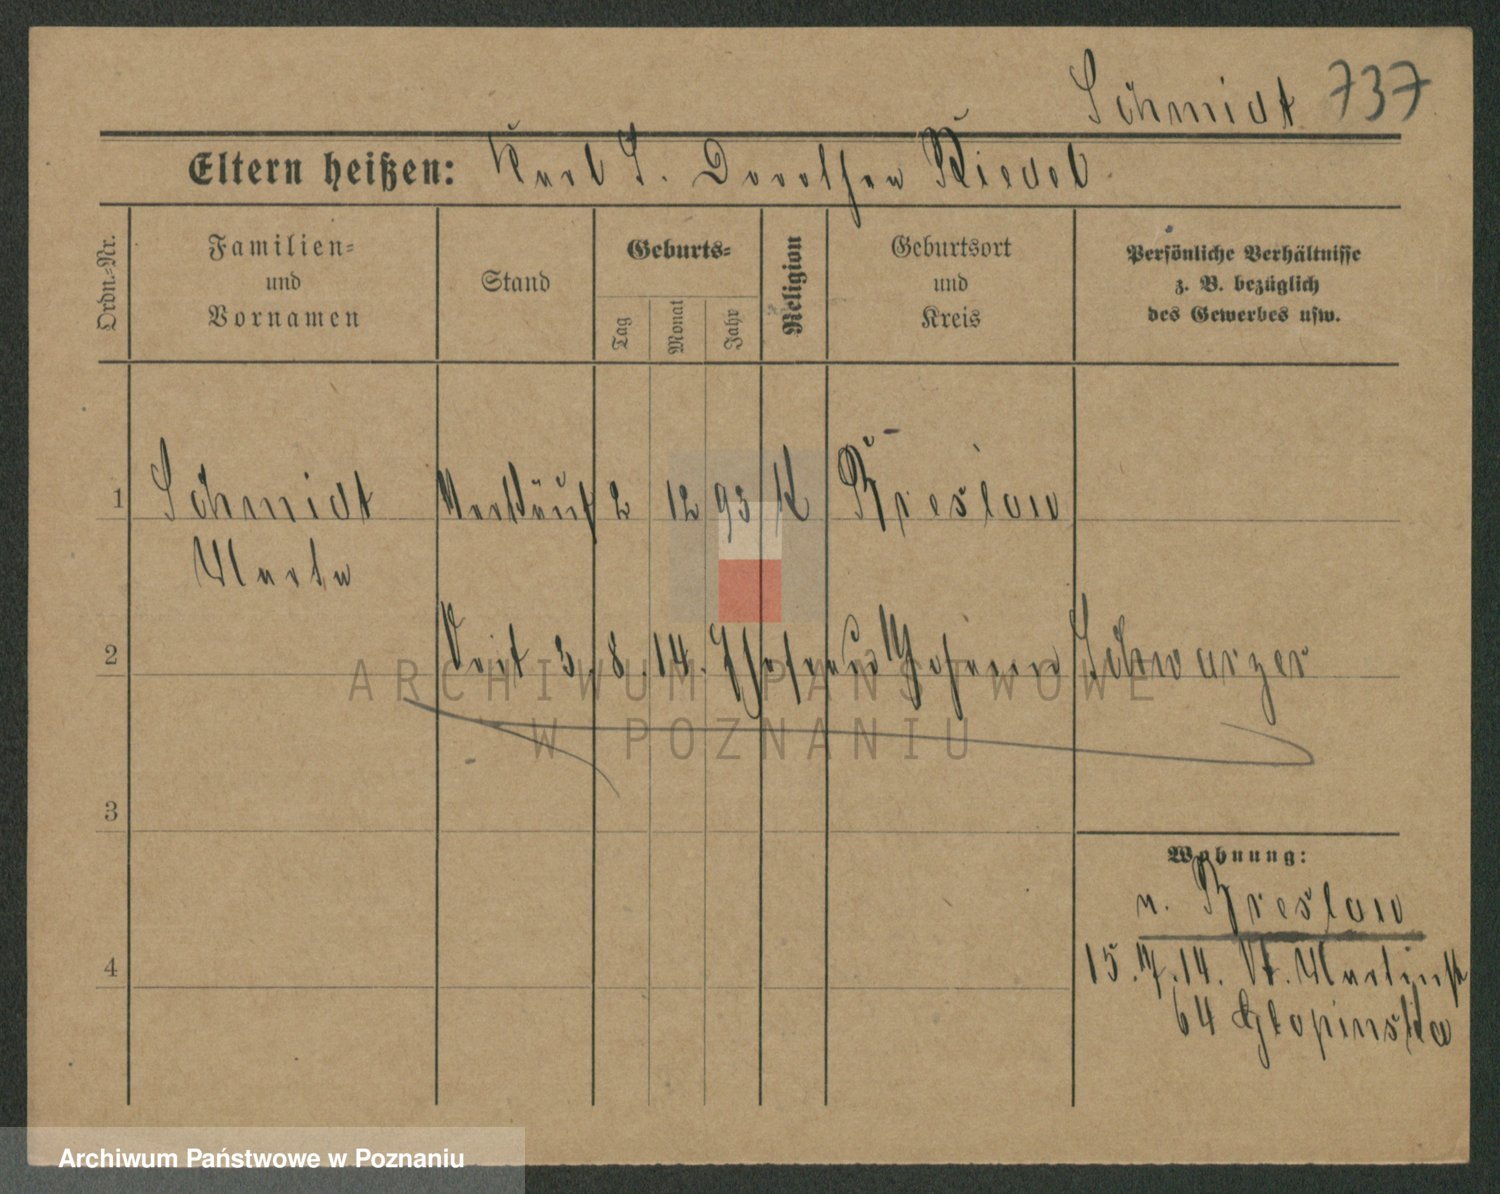 Schmidt 737
Eltern heißen: Karl S. Dorothea Riedel
Ordn.-Nr.
Familien-
und
Vornamen
Stand
Geburts-
Tag
Monat
Jahr
Religion
Geburtsort
und
Kreis
Persönliche Verhältnisse
z. B. bezüglich
des Gewerbes usw.
1 Schmidt Verkäuf 2 12 93 K Breslau
Marta
2 3. 8. 14. Schwarzer
ARCHIWUM PAŃSTWOWE
W POZNANIU
3
Wohnung:
v. Breslau
4
15. 7. 14. St. Martinstr
64
Archiwum Państwowe w Poznaniu